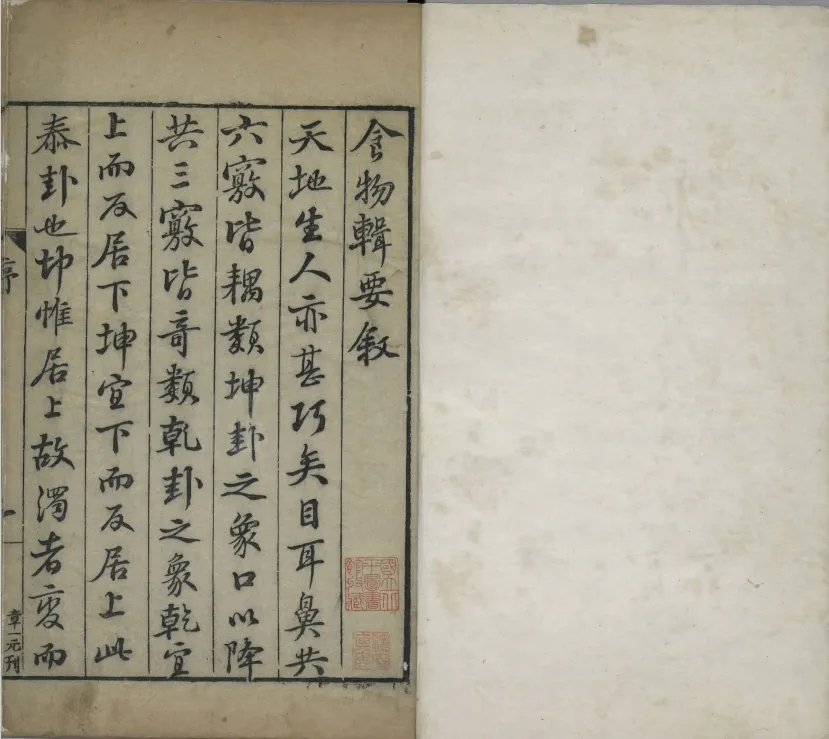 食物輯要敘
天地生人亦甚巧矣目耳鼻共
六竅皆耦類坤卦之象口以降
共三竅皆奇類乾卦之象乾宜
上而反居下坤宜下而反居上此
泰卦也坤惟居上故濁者變而
序
一
章一元刊